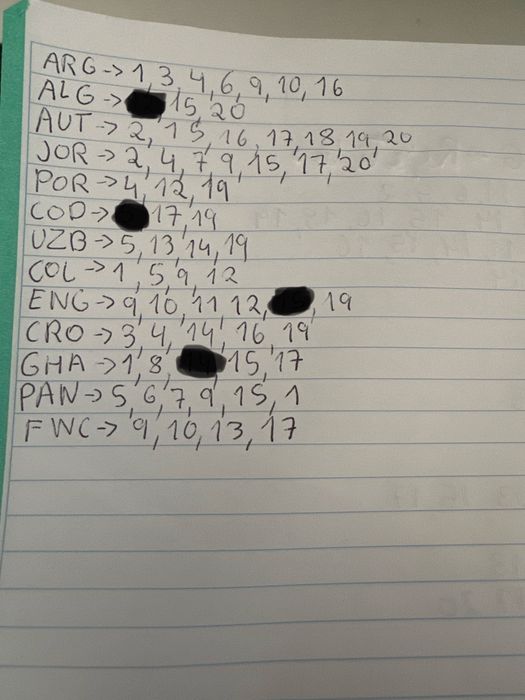 ARG->1,3,4,6,9,10,16
ALG-> 15,20
AUT->2,15,16,17,18,19,20
JOR->2,4,7,9,15,17,20
POR->4,12,19
COD-> 17,19
UZB->5,13,14,19
COL->1,5,9,12
ENG->9,10,11,12, ,19
CRO->3,4,14,16,19
GHA->1,8, 15,17
PAN->5,6,7,9,15,1
FWC->9,10,13,17